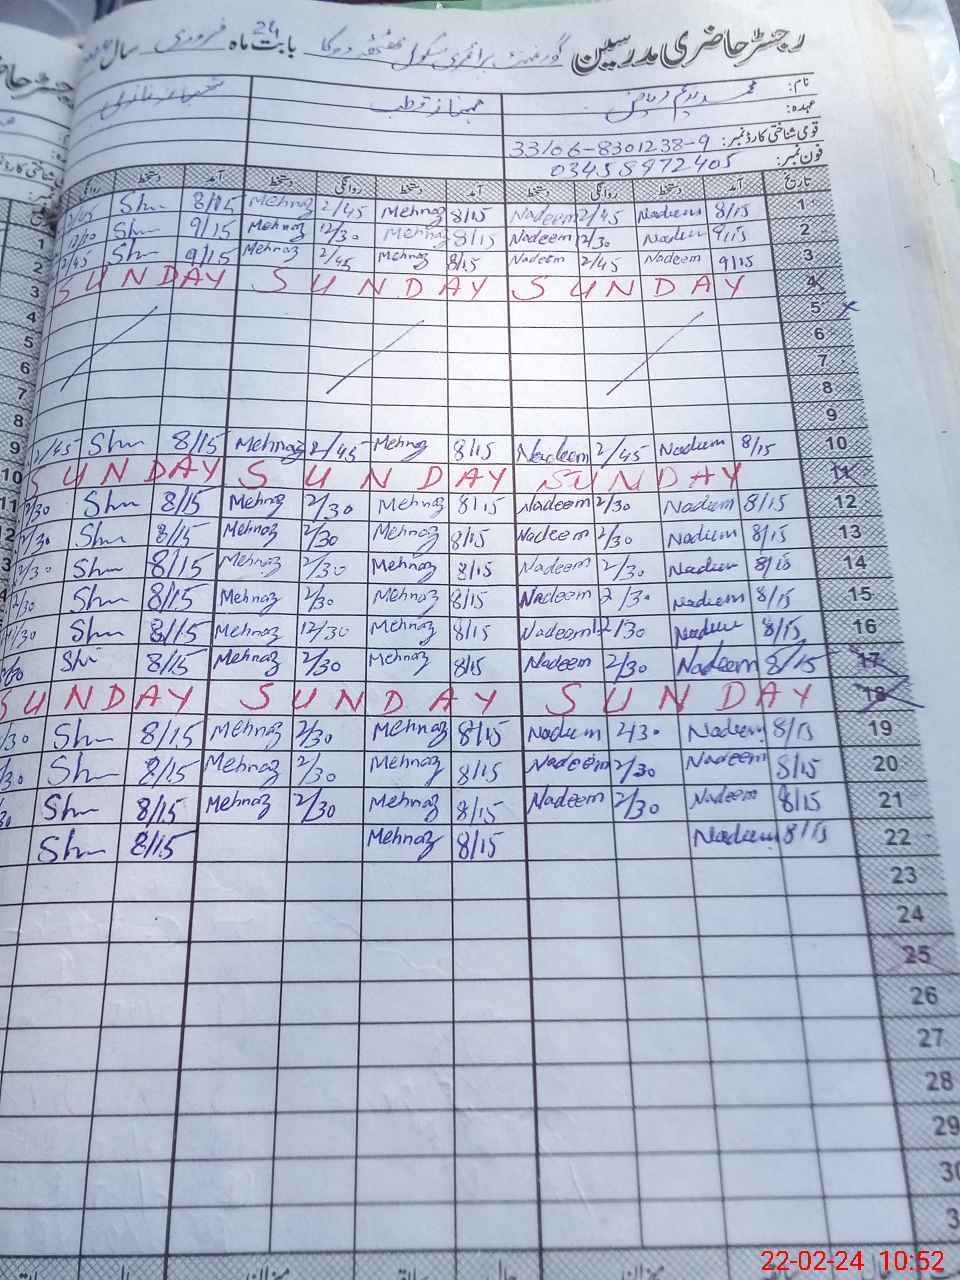 رجسٹر حاضری مدرسین گورنمنٹ پرائمری سکول بابت ماہ فروری سال
24
نام: محمد ندیم ریاض ممتاز قطب
عہدہ:
قومی شناختی کارڈ نمبر: 33106-8301238-9
فون نمبر: 03458972405
تاریخ آمد دستخط روانگی دستخط آمد دستخط روانگی دستخط آمد دستخط روانگی
1 8/15 Nadeem 2/45 Nadeem 8/15 Mehnaz 2/45 Mehnaz 8/15 Shm
2 9/15 Nadeem 12/30 Nadeem 8/15 Mehnaz 12/30 Mehnaz 9/15 Shm
3 9/15 Nadeem 2/45 Nadeem 8/15 Mehnaz 2/45 Mehnaz 9/15 Shm 2/45
SUNDAY SUNDAY SUNDAY 4
5
6
7
8
9
10 8/15 Nadeem 2/45 Nadeem 8/15 Mehnaz 2/45 Mehnaz 8/15 Shm 2/45
SUNDAY SUNDAY SUNDAY 11
12 8/15 Nadeem 2/30 Nadeem 8/15 Mehnaz 2/30 Mehnaz 8/15 Shm 2/30
13 8/15 Nadeem 2/30 Nadeem 8/15 Mehnaz 2/30 Mehnaz 8/15 Shm 2/30
14 8/15 Nadeem 2/30 Nadeem 8/15 Mehnaz 2/30 Mehnaz 8/15 Shm 2/30
15 8/15 Nadeem 2/30 Nadeem 8/15 Mehnaz 2/30 Mehnaz 8/15 Shm 2/30
16 8/15 Nadeem 12/30 Nadeem 8/15 Mehnaz 12/30 Mehnaz 8/15 Shm
17 8/15 Nadeem 2/30 Nadeem 8/15 Mehnaz 2/30 Mehnaz 8/15 Shm
SUNDAY SUNDAY SUNDAY 18
19 8/15 Nadeem 2/30 Nadeem 8/15 Mehnaz 2/30 Mehnaz 8/15 Shm
20 8/15 Nadeem 2/30 Nadeem 8/15 Mehnaz 2/30 Mehnaz 8/15 Shm
21 8/15 Nadeem 2/30 Nadeem 8/15 Mehnaz 2/30 Mehnaz 8/15 Shm
22 8/15 Nadeem 8/15 Mehnaz 8/15 Shm
23
24
25
26
27
28
29
30
22-02-24 10:52